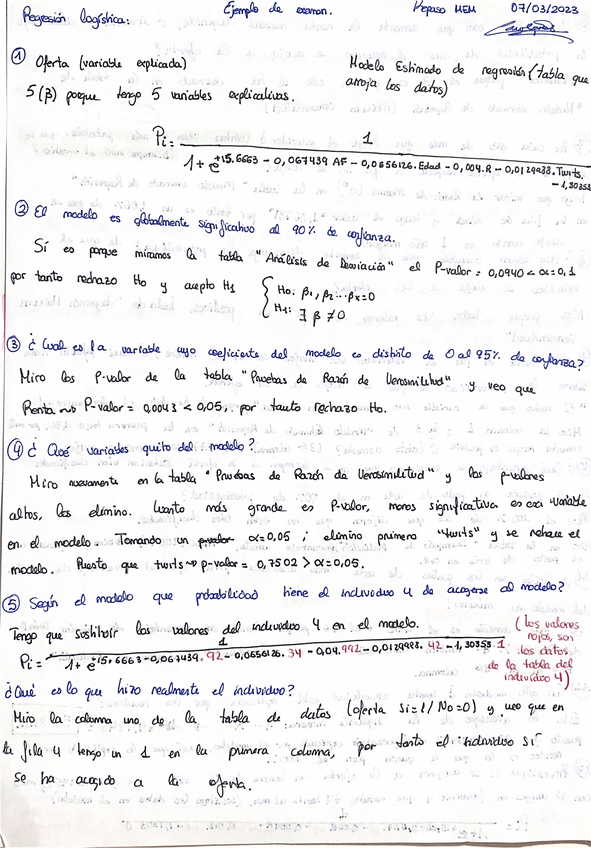 Regresión logística:
Ejemplo de examen.
Repaso MEM
07/03/2023
① Oferta (variable explicada)
5 (β) porque tengo 5 variables explicativas.
Modelo Estimado de regresión (tabla que
arroja los datos)
Pi = 1
1 + e^+15.6663 - 0,067439 AF - 0,0656126. Edad - 0,004.R - 0,0129988. Twits.
- 1,30353
② El modelo es globalmente significativo al 90% de confianza.
Sí es porque miramos la tabla "Análisis de Desviación" el P-valor = 0,0940 < α=0,1
por tanto rechazo Ho y acepto H1 { Ho: β1, β2 ... βk=0
H1: ∃ β ≠ 0
③ ¿Cual es la variable cuyo coeficiente del modelo es distinto de 0 al 95% de confianza?
Miro los P-valor de la tabla "Pruebas de Razón de Verosimilitud" y veo que
Renta ~> P-valor = 0,0043 < 0,05, por tanto rechazo Ho.
④ ¿ Qué variables quito del modelo?
Miro nuevamente en la tabla "Pruebas de Razón de Verosimilitud" y los p-valores
altos, los elimino. Cuanto más grande es P-valor, menos significativa es esa variable
en el modelo. Tomando un α=0,05 ; elimino primero "twits" y se rehace el
modelo. Puesto que twits ~> p-valor = 0,7502 > α=0,05.
⑤ Según el modelo que probabilidad tiene el individuo 4 de acogerse al modelo?
Tengo que sustituir los valores del individuo 4 en el modelo.
Pi = 1
1 + e^+15,6663 - 0,067439. 92 - 0,0656126. 34 - 0,04. 992 - 0,0129988. 42 - 1,30353. 1
(los valores
rojos, son
los datos
de la tabla del
individuo 4)
¿Qué es lo que hizo realmente el individuo?
Miro la columna uno de la tabla de datos (oferta Si=1/No=0) y veo que en
la fila 4 tengo un 1 en la primera columna, por tanto el individuo SÍ
se ha acogido a la oferta.